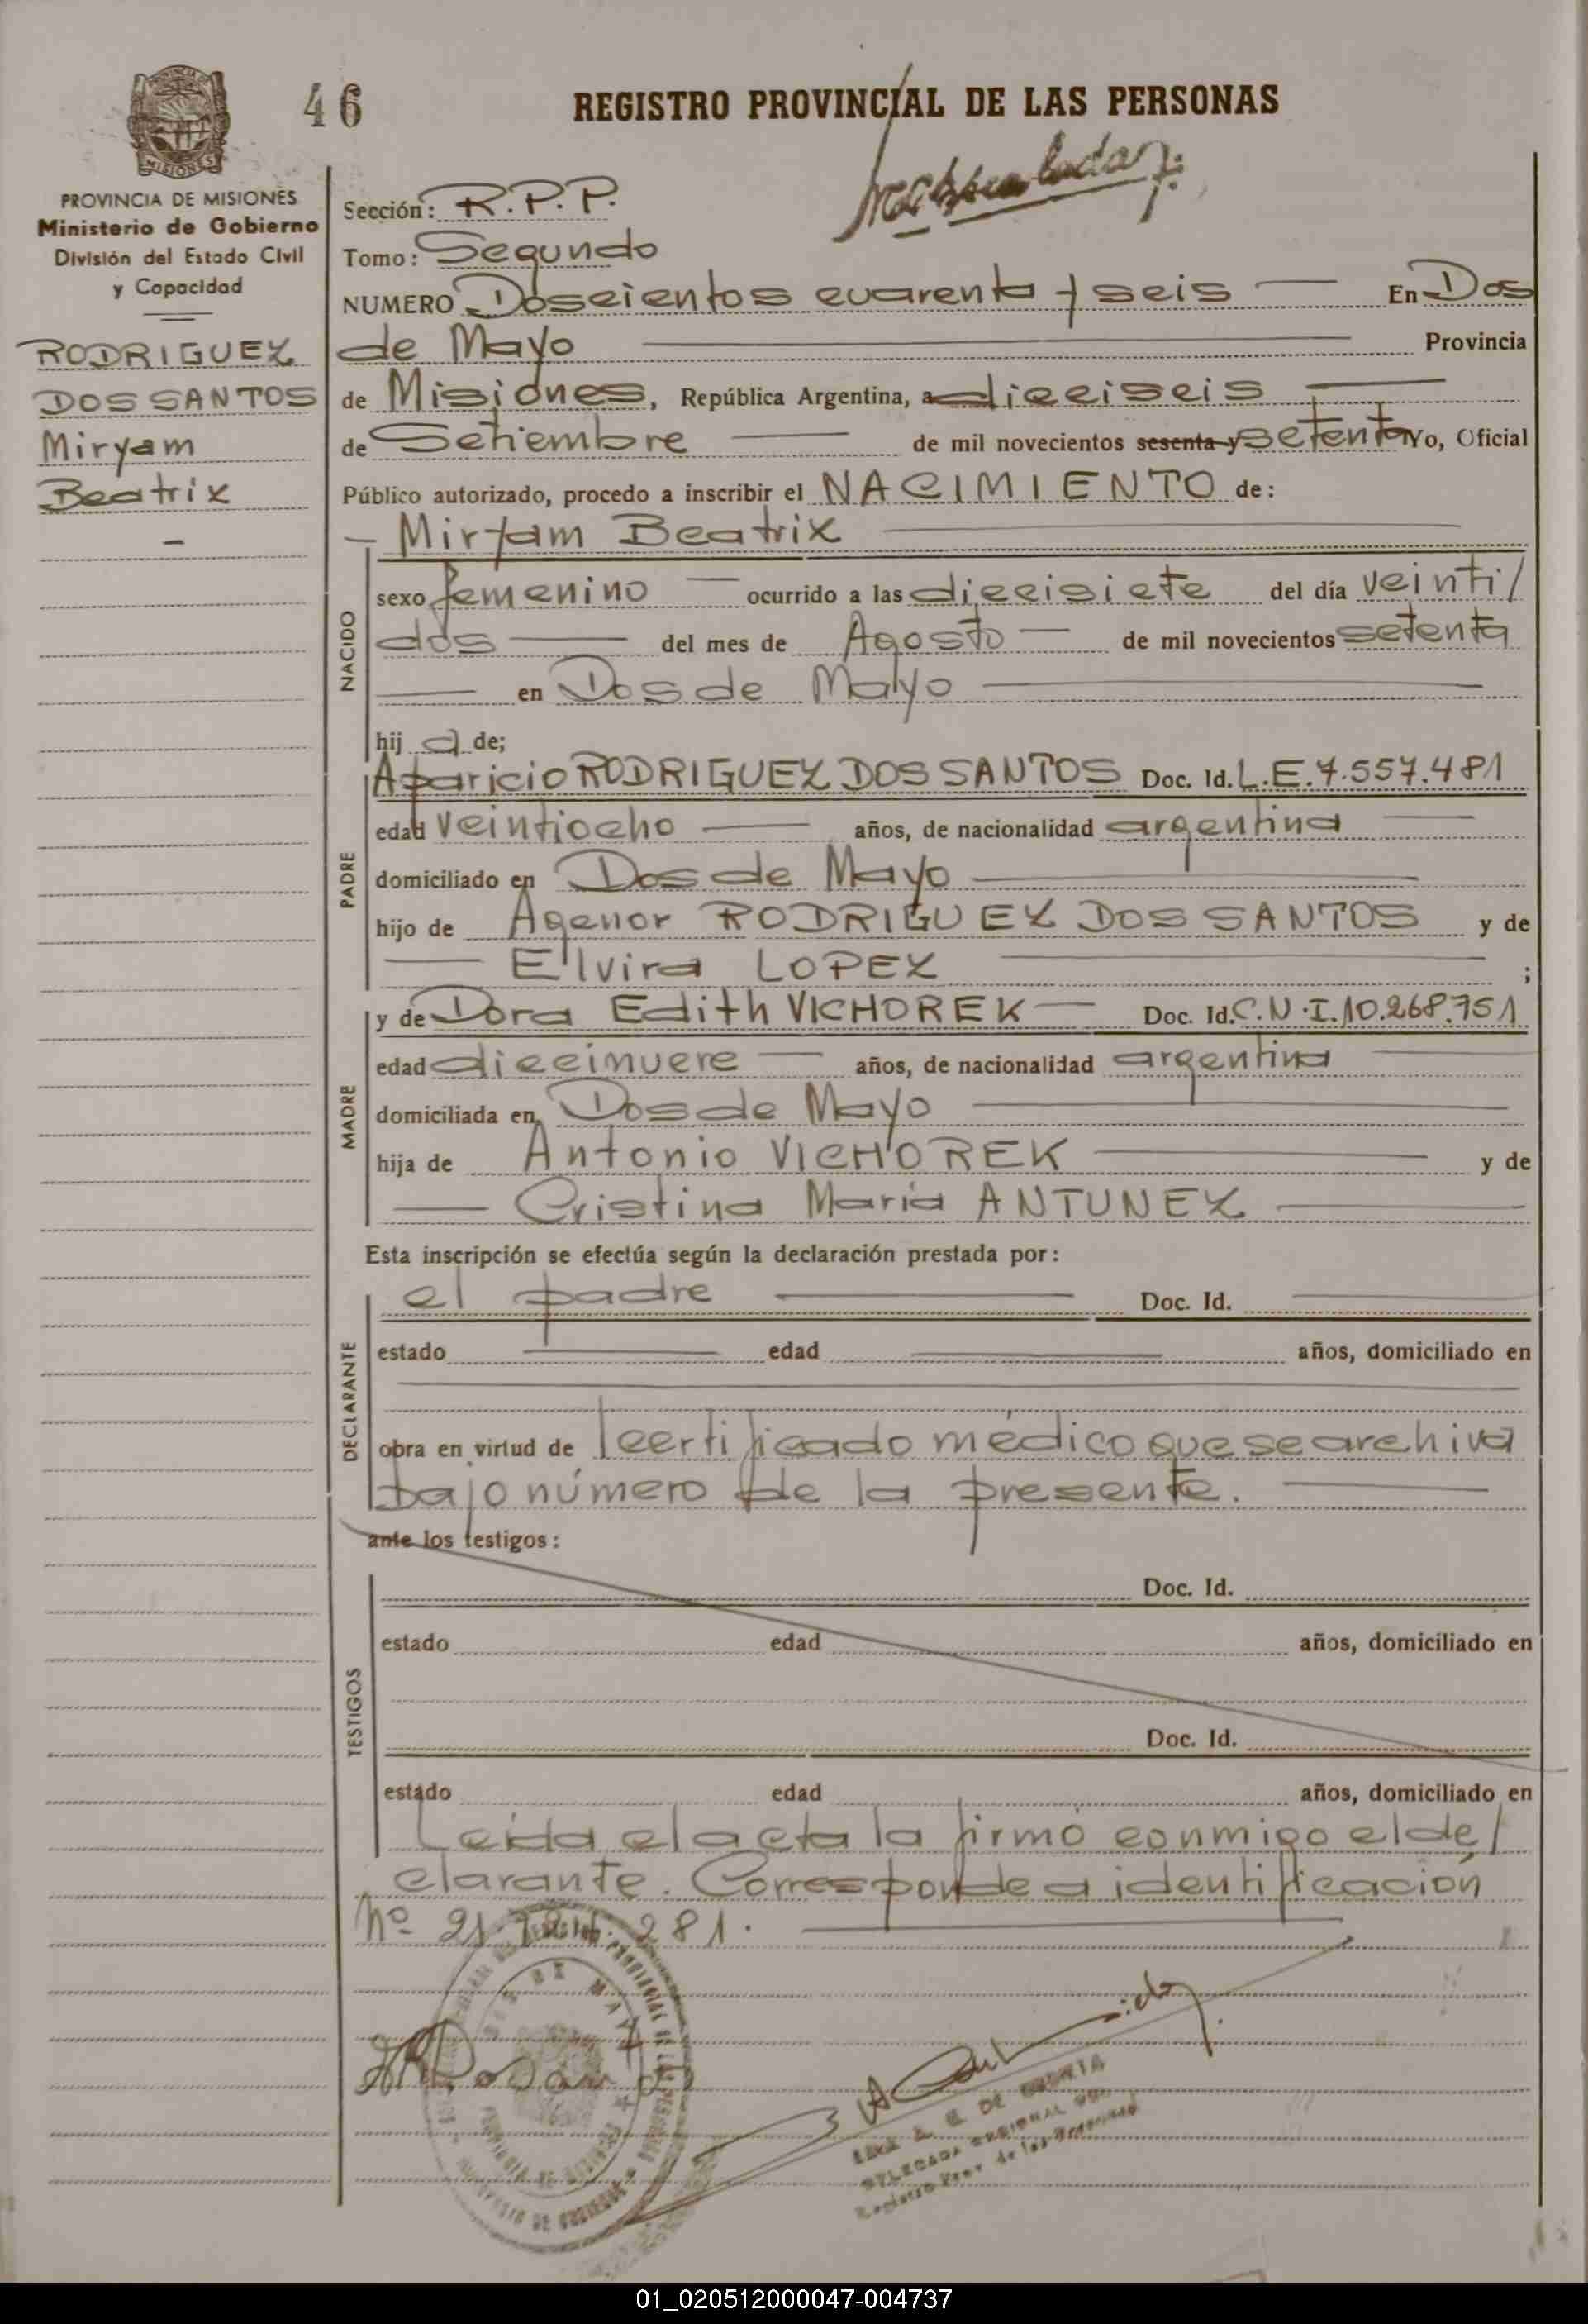 46
REGISTRO PROVINCIAL DE LAS PERSONAS
PROVINCIA DE MISIONES
Ministerio de Gobierno
División del Estado Civil
y Capacidad
RODRIGUEZ
DOS SANTOS
Miryam
Beatrix
Sección: R.P.P.
Tomo: Segundo
NUMERO Doscientos cuarenta y seis En Dos
de Mayo Provincia
de Misiones, República Argentina, a dieciseis
de Setiembre de mil novecientos sesenta y setenta Yo, Oficial
Público autorizado, procedo a inscribir el NACIMIENTO de:
Miryam Beatrix
NACIDO
sexo femenino ocurrido a las diecisiete del día veinti/
dos del mes de Agosto de mil novecientos setenta
en Dos de Mayo
hij a de;
PADRE
Aparicio RODRIGUEZ DOS SANTOS Doc. Id. L.E. 7.557.481
edad veintiocho años, de nacionalidad argentina
domiciliado en Dos de Mayo
hijo de Agenor RODRIGUEZ DOS SANTOS y de
Elvira LOPEZ ;
MADRE
y de Dora Edith VICHOREK Doc. Id. C.N.I. 10.268.751
edad diecinueve años, de nacionalidad argentina
domiciliada en Dos de Mayo
hija de Antonio VICHOREK y de
Cristina María ANTUNEZ
Esta inscripción se efectúa según la declaración prestada por:
DECLARANTE
el padre Doc. Id.
estado edad años, domiciliado en
obra en virtud de certificado médico que se archiva
bajo número de la presente.
ante los testigos:
TESTIGOS
Doc. Id.
estado edad años, domiciliado en
Doc. Id.
estado edad años, domiciliado en
Leída el acta la firmó conmigo el de/
clarante. Corresponde a identificación
Nº 21. 281.
DE
DELEGADA REGIONAL
Registro Prov. de las Personas
01_020512000047-004737